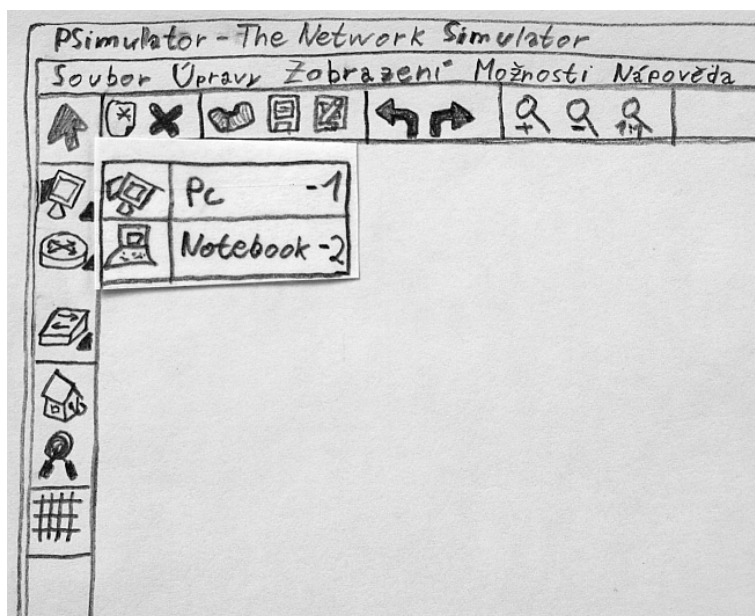 PSimulator - The Network Simulator
Soubor Úpravy Zobrazení Možnosti Nápověda
+ - 1:1
Pc -1
Notebook -2